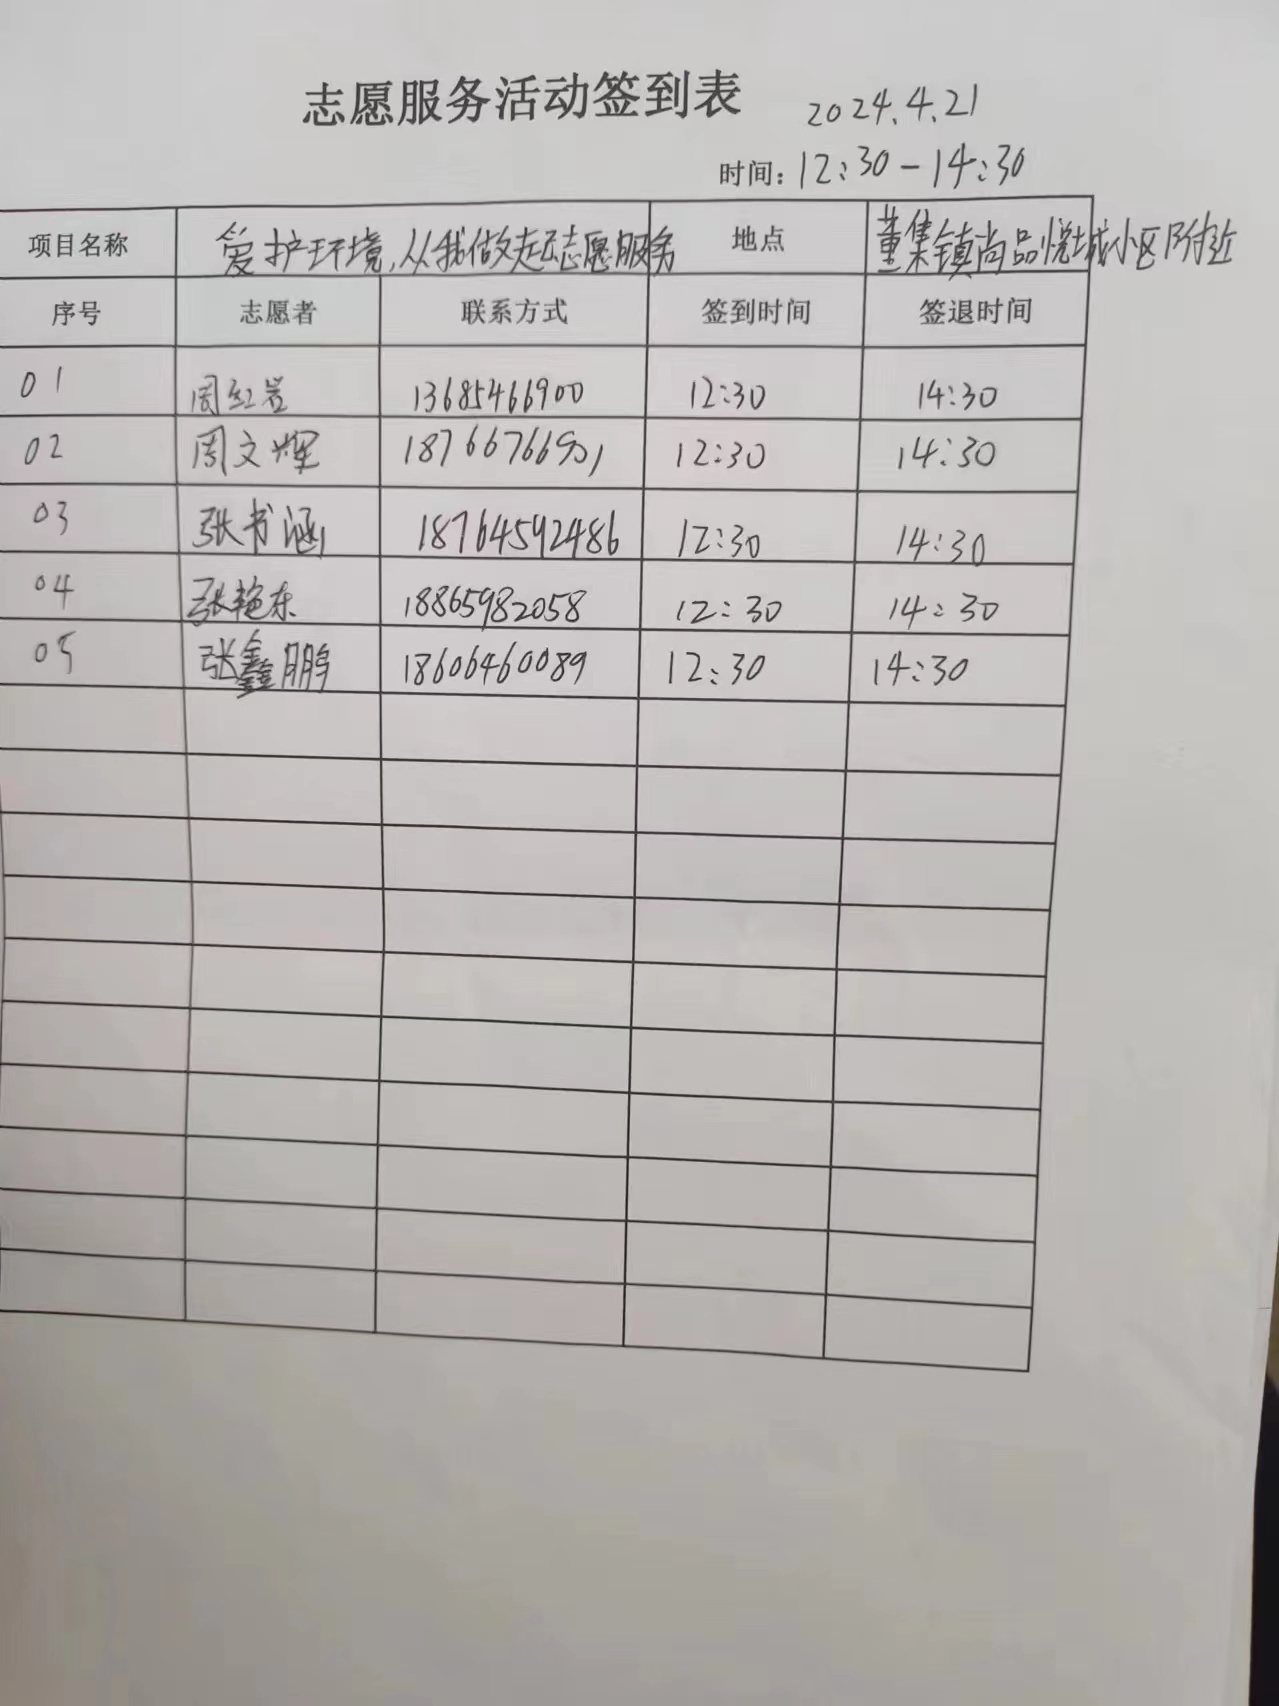 志愿服务活动签到表 2024.4.21
时间：12:30-14:30
项目名称 爱护环境，从我做起志愿服务 地点 董集镇尚品悦城小区附近
序号 志愿者 联系方式 签到时间 签退时间
01 周红岩 13685466900 12:30 14:30
02 周文辉 12:30 14:30
03 张书涵 18764592486 12:30 14:30
04 张艳东 18865982058 12:30 14:30
05 张鑫鹏 18606460089 12:30 14:30